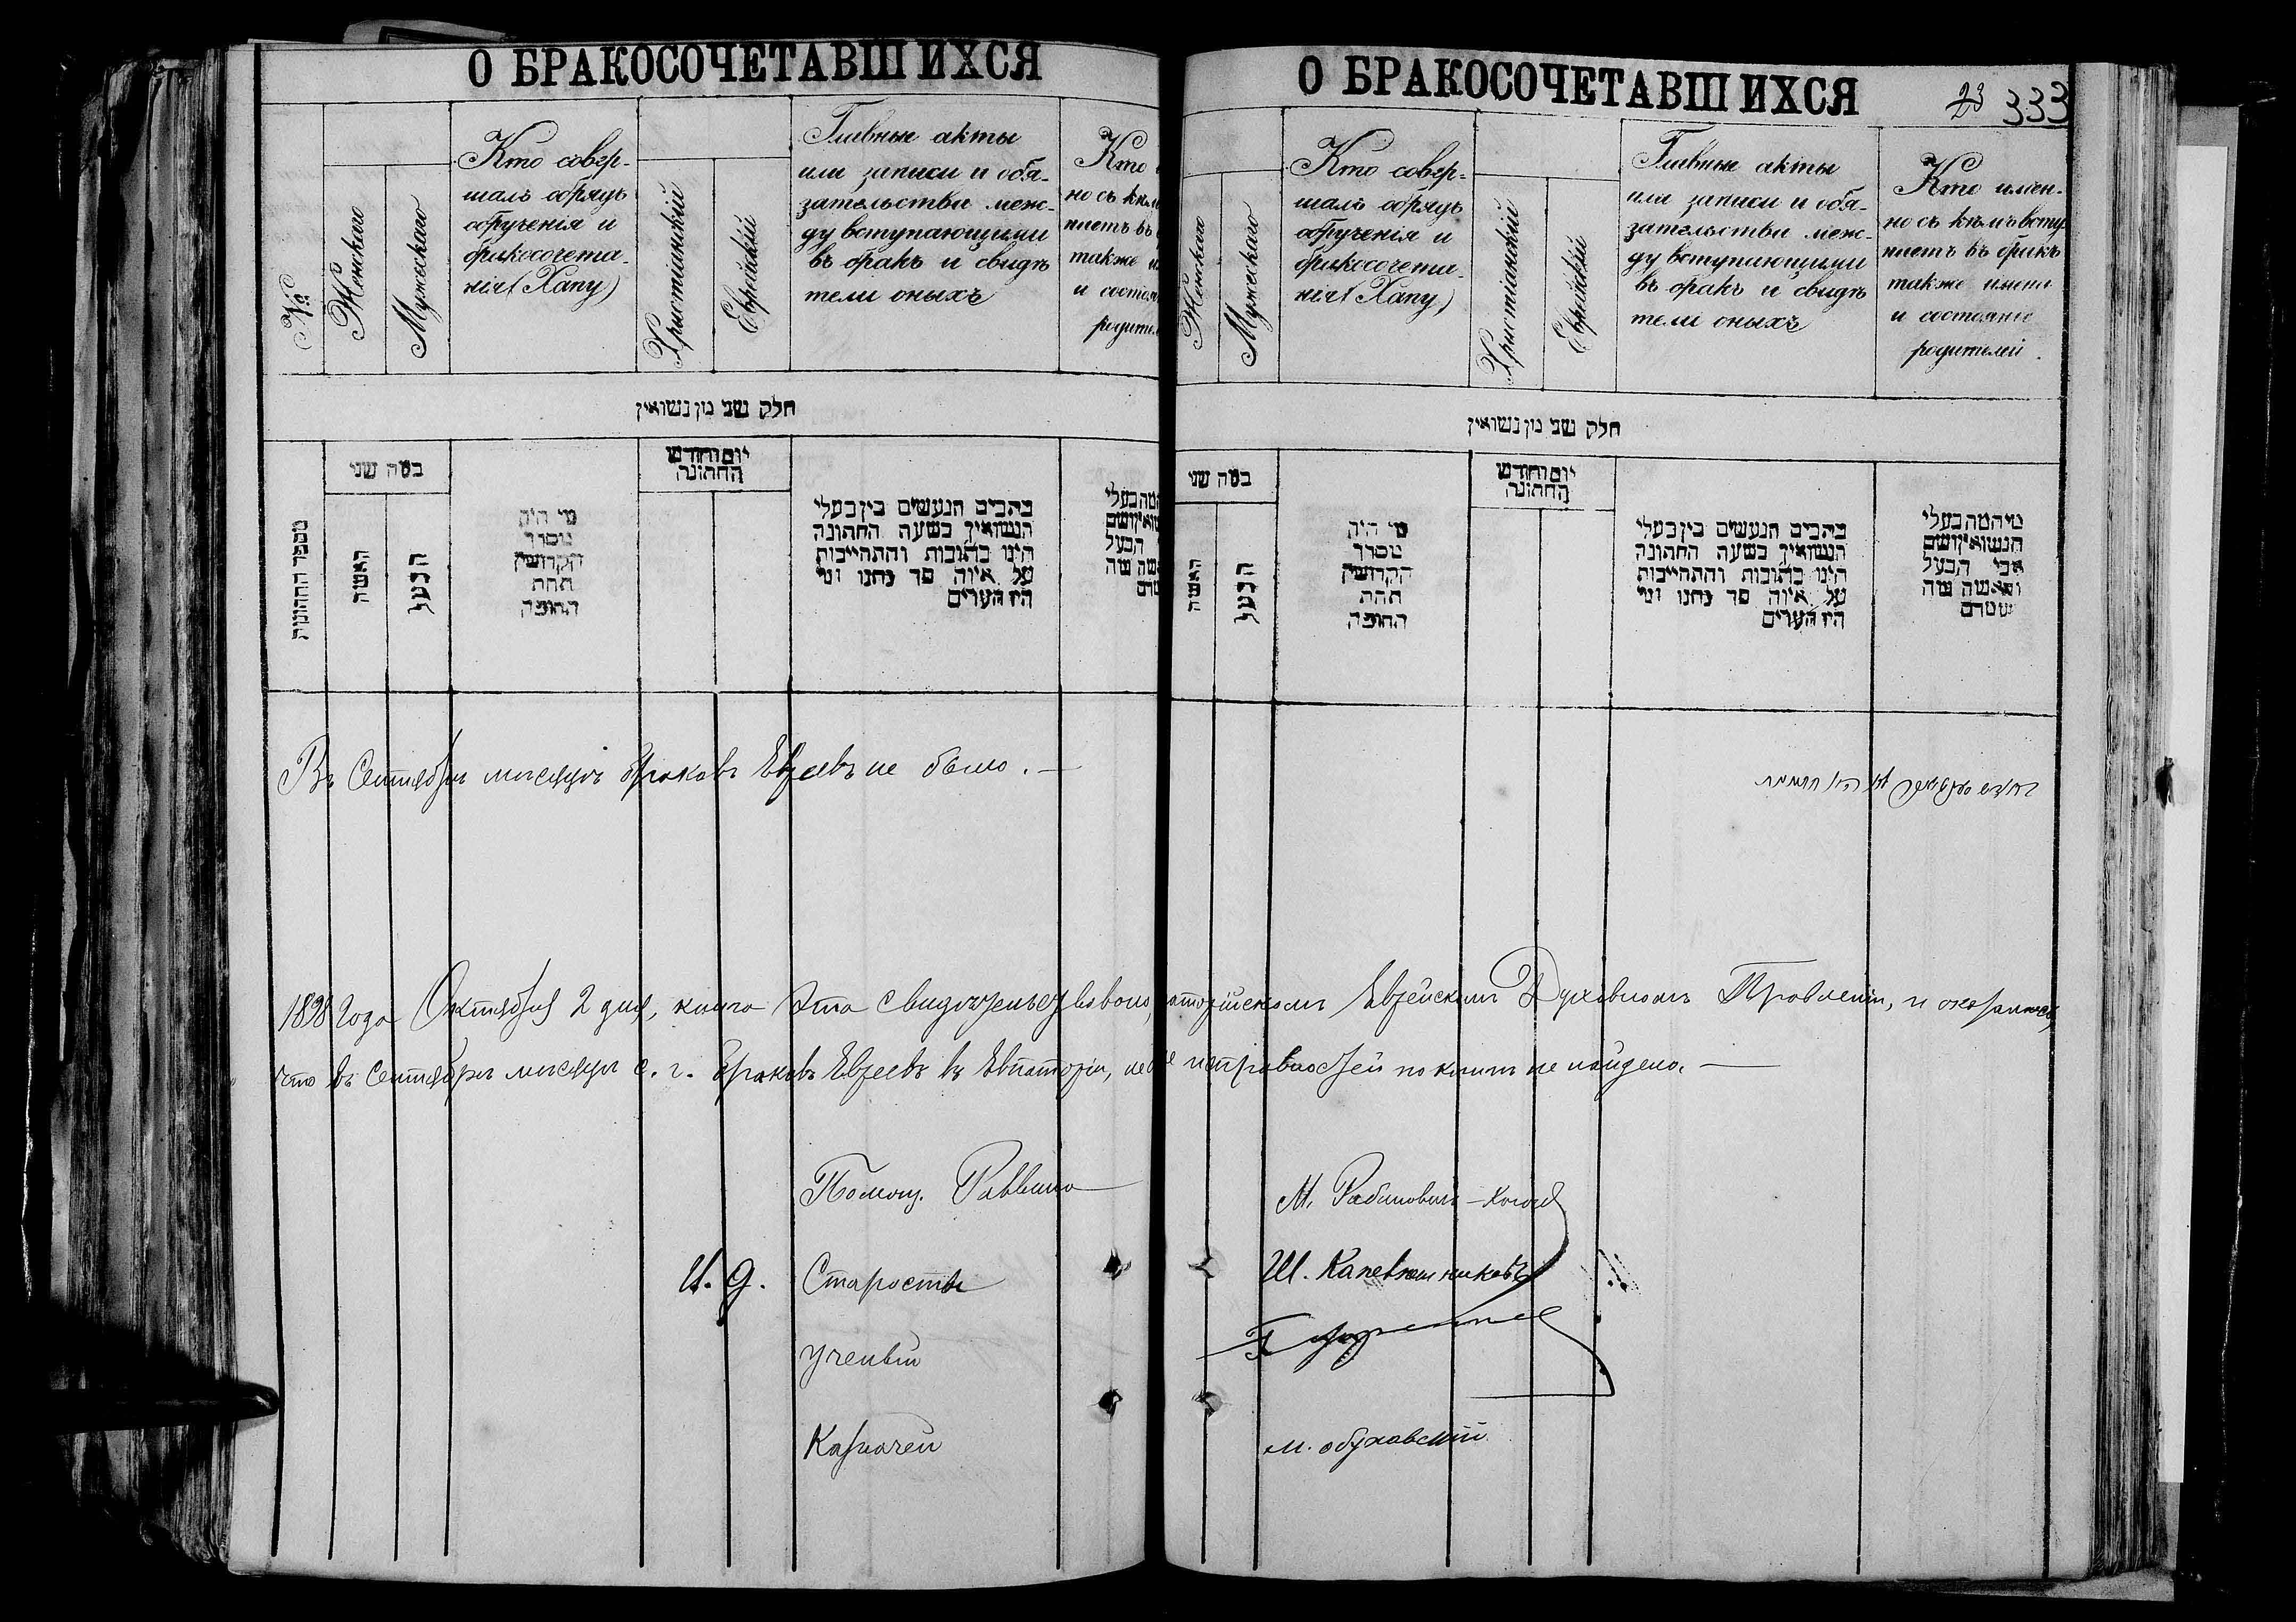 О БРАКОСОЧЕТАВШИХСЯ
№
Женскаго
Мужескаго
Кто совер-
шалъ обрядъ
обрученія и
бракосочета-
нія (Хапу)
Христіанскій
Еврейскій
Главные акты
или записи и обя-
зательства меж-
ду вступающими
въ бракъ и свидѣ
тели оныхъ
Кто
но съ
также
и
חלק שני מן נשואין
מספר החתונות
במה שני
האשה
הבעל
מי היה
מסדר
הקדושין
תחת
החופה
יום וחודש
החתונה
כתבים הנעשים בין בעלי
הנשואין בשעה החתונה
היינו כתובות והתחייבות
על איזה סך נתנו ומי
הם הערים
Въ Сентябрѣ мѣсяцѣ браковъ Евреевъ не было. —
О БРАКОСОЧЕТАВШИХСЯ
23 333
Женскаго
Мужескаго
Кто совер-
шалъ обрядъ
обрученія и
бракосочета-
нія (Хапу)
Христіанскій
Еврейскій
Главные акты
или записи и обя-
зательства меж-
ду вступающими
въ бракъ и свидѣ
тели оныхъ
Кто имен-
но съ кѣмъ всту
паетъ въ бракъ
также имена
и состояніе
родителей.
חלק שני מן נשואין
במה שני
האשה
הבעל
מי היה
מסדר
הקדושין
תחת
החופה
יום וחודש
החתונה
כתבים הנעשים בין בעלי
הנשואין בשעה החתונה
היינו כתובות והתחייבות
על איזה סך נתנו ומי
הם הערים
מי המה בעלי
הנשואין ושם
אבי הבעל
והאשה
1898 года Октября 2 дня, книга эта въ Евпаторійскомъ Еврейскомъ Духовномъ Правленіи, и оказалось,
что въ Сентябрѣ мѣсяцѣ с. г. браковъ Евреевъ въ Евпаторіи, не и неправностей по книгѣ не найдено. —
Помощ. Раввина М. Рабиновичъ-
И. д. Старосты Ш.
Ученый
Казначей М. Обуховскій